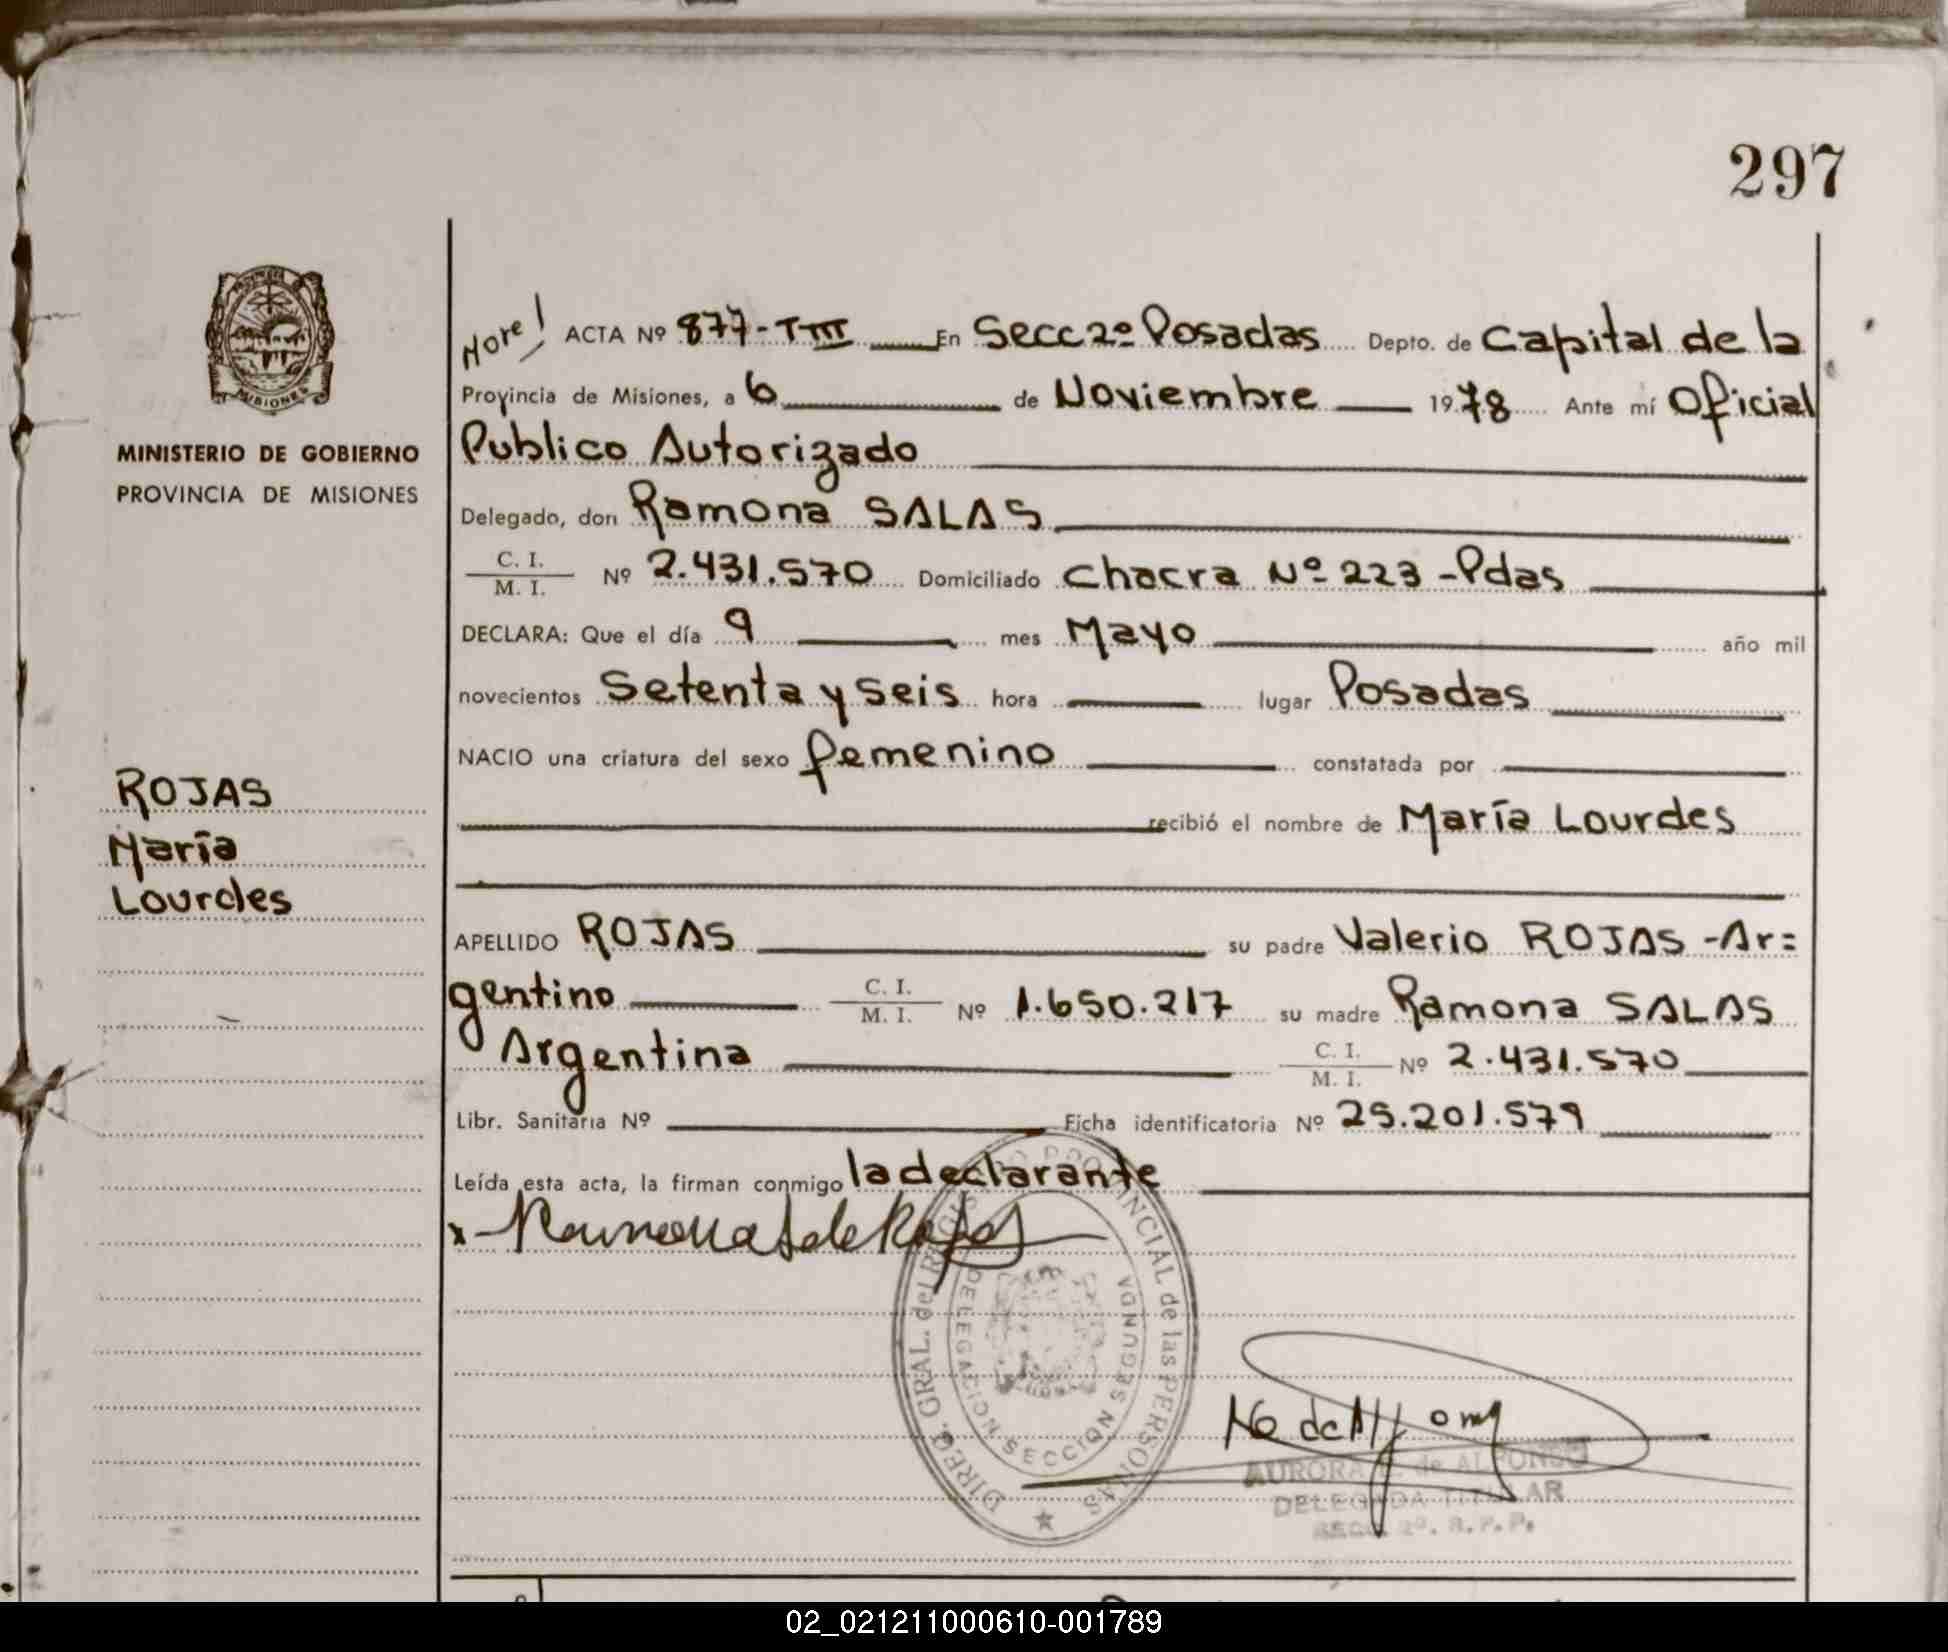 297
PROVINCIA DE
MISIONES
MINISTERIO DE GOBIERNO
PROVINCIA DE MISIONES
ROJAS
María
Lourdes
ACTA Nº 877-TIII En Secc 2º Posadas Depto. de Capital de la
Provincia de Misiones, a 6 de Noviembre 1978 Ante mí Oficial
Publico Autorizado
Delegado, don Ramona SALAS
C. I.
M. I. Nº 2.431.570 Domiciliado Chacra Nº 223 - Pdas
DECLARA: Que el día 9 mes Mayo año mil
novecientos Setenta y Seis hora lugar Posadas
NACIO una criatura del sexo femenino constatada por
recibió el nombre de María Lourdes
APELLIDO ROJAS su padre Valerio ROJAS - Ar=
gentino C. I. M. I. Nº 1.650.217 su madre Ramona SALAS
Argentina C. I. M. I. Nº 2.431.570
Libr. Sanitaria Nº Ficha identificatoria Nº 25.201.579
Leída esta acta, la firman conmigo la declarante
x- Ramona S de Rojas
DIREC. GRAL. del REGISTRO PROVINCIAL de las PERSONAS
DELEGACION SECCION SEGUNDA
AURORA de ALFONSO
DELEGADA TITULAR
SECC. 2º. R. P. P.
02_021211000610-001789